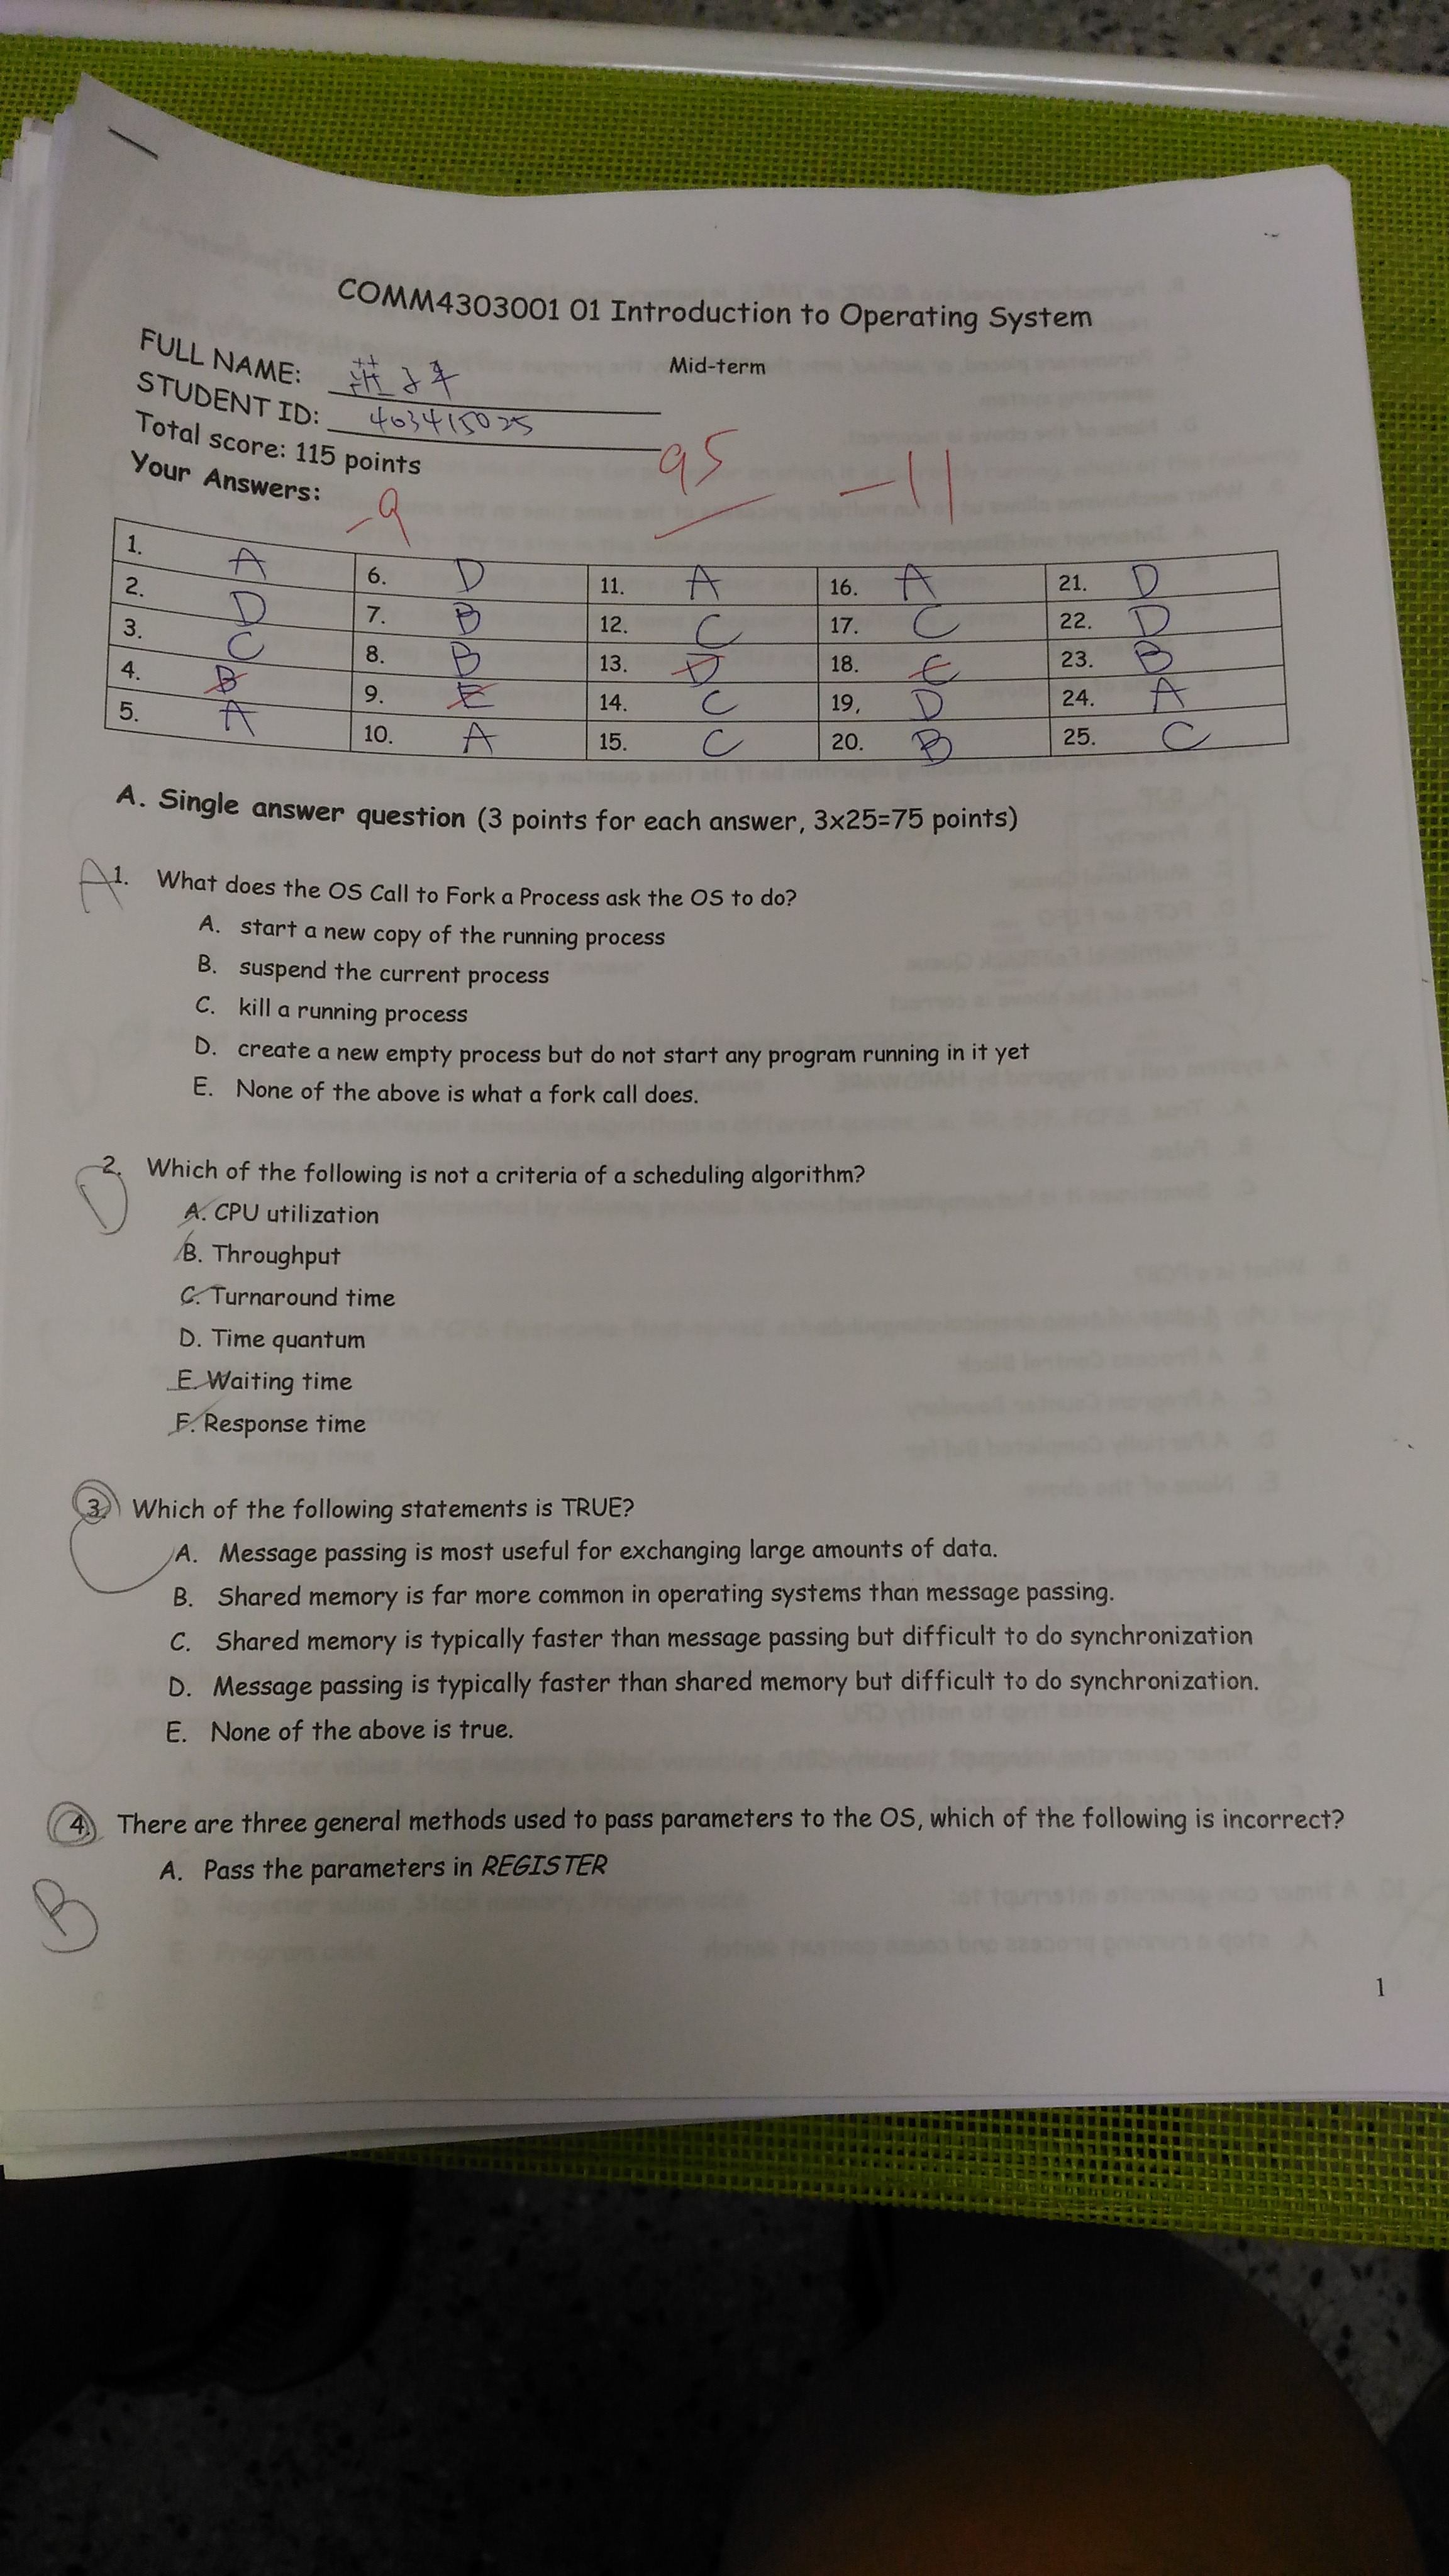 COMM4303001 01 Introduction to Operating System
Mid-term
FULL NAME:
STUDENT ID: 403415025
Total score: 115 points
95 -11
Your Answers:
-9
1. A 6. D 11. A 16. A 21. D
2. D 7. B 12. C 17. C 22. D
3. C 8. B 13. D 18. C 23. B
4. B 9. E 14. C 19, D 24. A
5. A 10. A 15. C 20. B 25. C
A. Single answer question (3 points for each answer, 3x25=75 points)
A 1. What does the OS Call to Fork a Process ask the OS to do?
A. start a new copy of the running process
B. suspend the current process
C. kill a running process
D. create a new empty process but do not start any program running in it yet
E. None of the above is what a fork call does.
D 2. Which of the following is not a criteria of a scheduling algorithm?
A. CPU utilization
B. Throughput
C. Turnaround time
D. Time quantum
E. Waiting time
F. Response time
C 3. Which of the following statements is TRUE?
A. Message passing is most useful for exchanging large amounts of data.
B. Shared memory is far more common in operating systems than message passing.
C. Shared memory is typically faster than message passing but difficult to do synchronization
D. Message passing is typically faster than shared memory but difficult to do synchronization.
E. None of the above is true.
4. There are three general methods used to pass parameters to the OS, which of the following is incorrect?
A. Pass the parameters in REGISTER
B
1